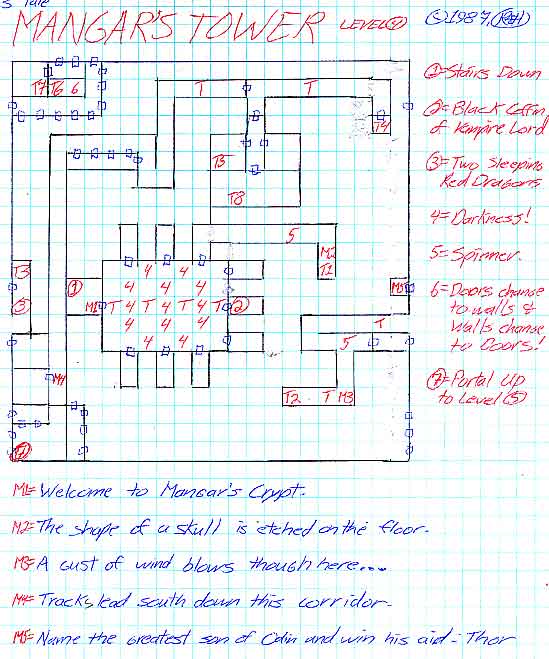 s Tale
MANGAR'S TOWER LEVEL (4) ©1987,
T7 T6 6
T T
T4
T5
T8
5
M2
T1
T3
3
1
4 4 4
4 4 4
M1 T 4 T 4 T 4 T 2
4 4 4
4 4 4
M5
T
5
M4
T2 T M3
7
①=Stairs Down
②=Black Coffin
of Vampire Lord
③=Two Sleeping
Red Dragons
4=Darkness!
5=Spinner.
6=Doors change
to walls &
walls change
to Doors!
⑦=Portal Up
to Level (5)
M1=Welcome to Mangar's Crypt.
M2=The shape of a skull is etched on the floor.
M3=A Gust of wind blows though here....
M4=Tracks lead south down this corridor.
M5=Name the greatest son of Odin and win his aid: Thor